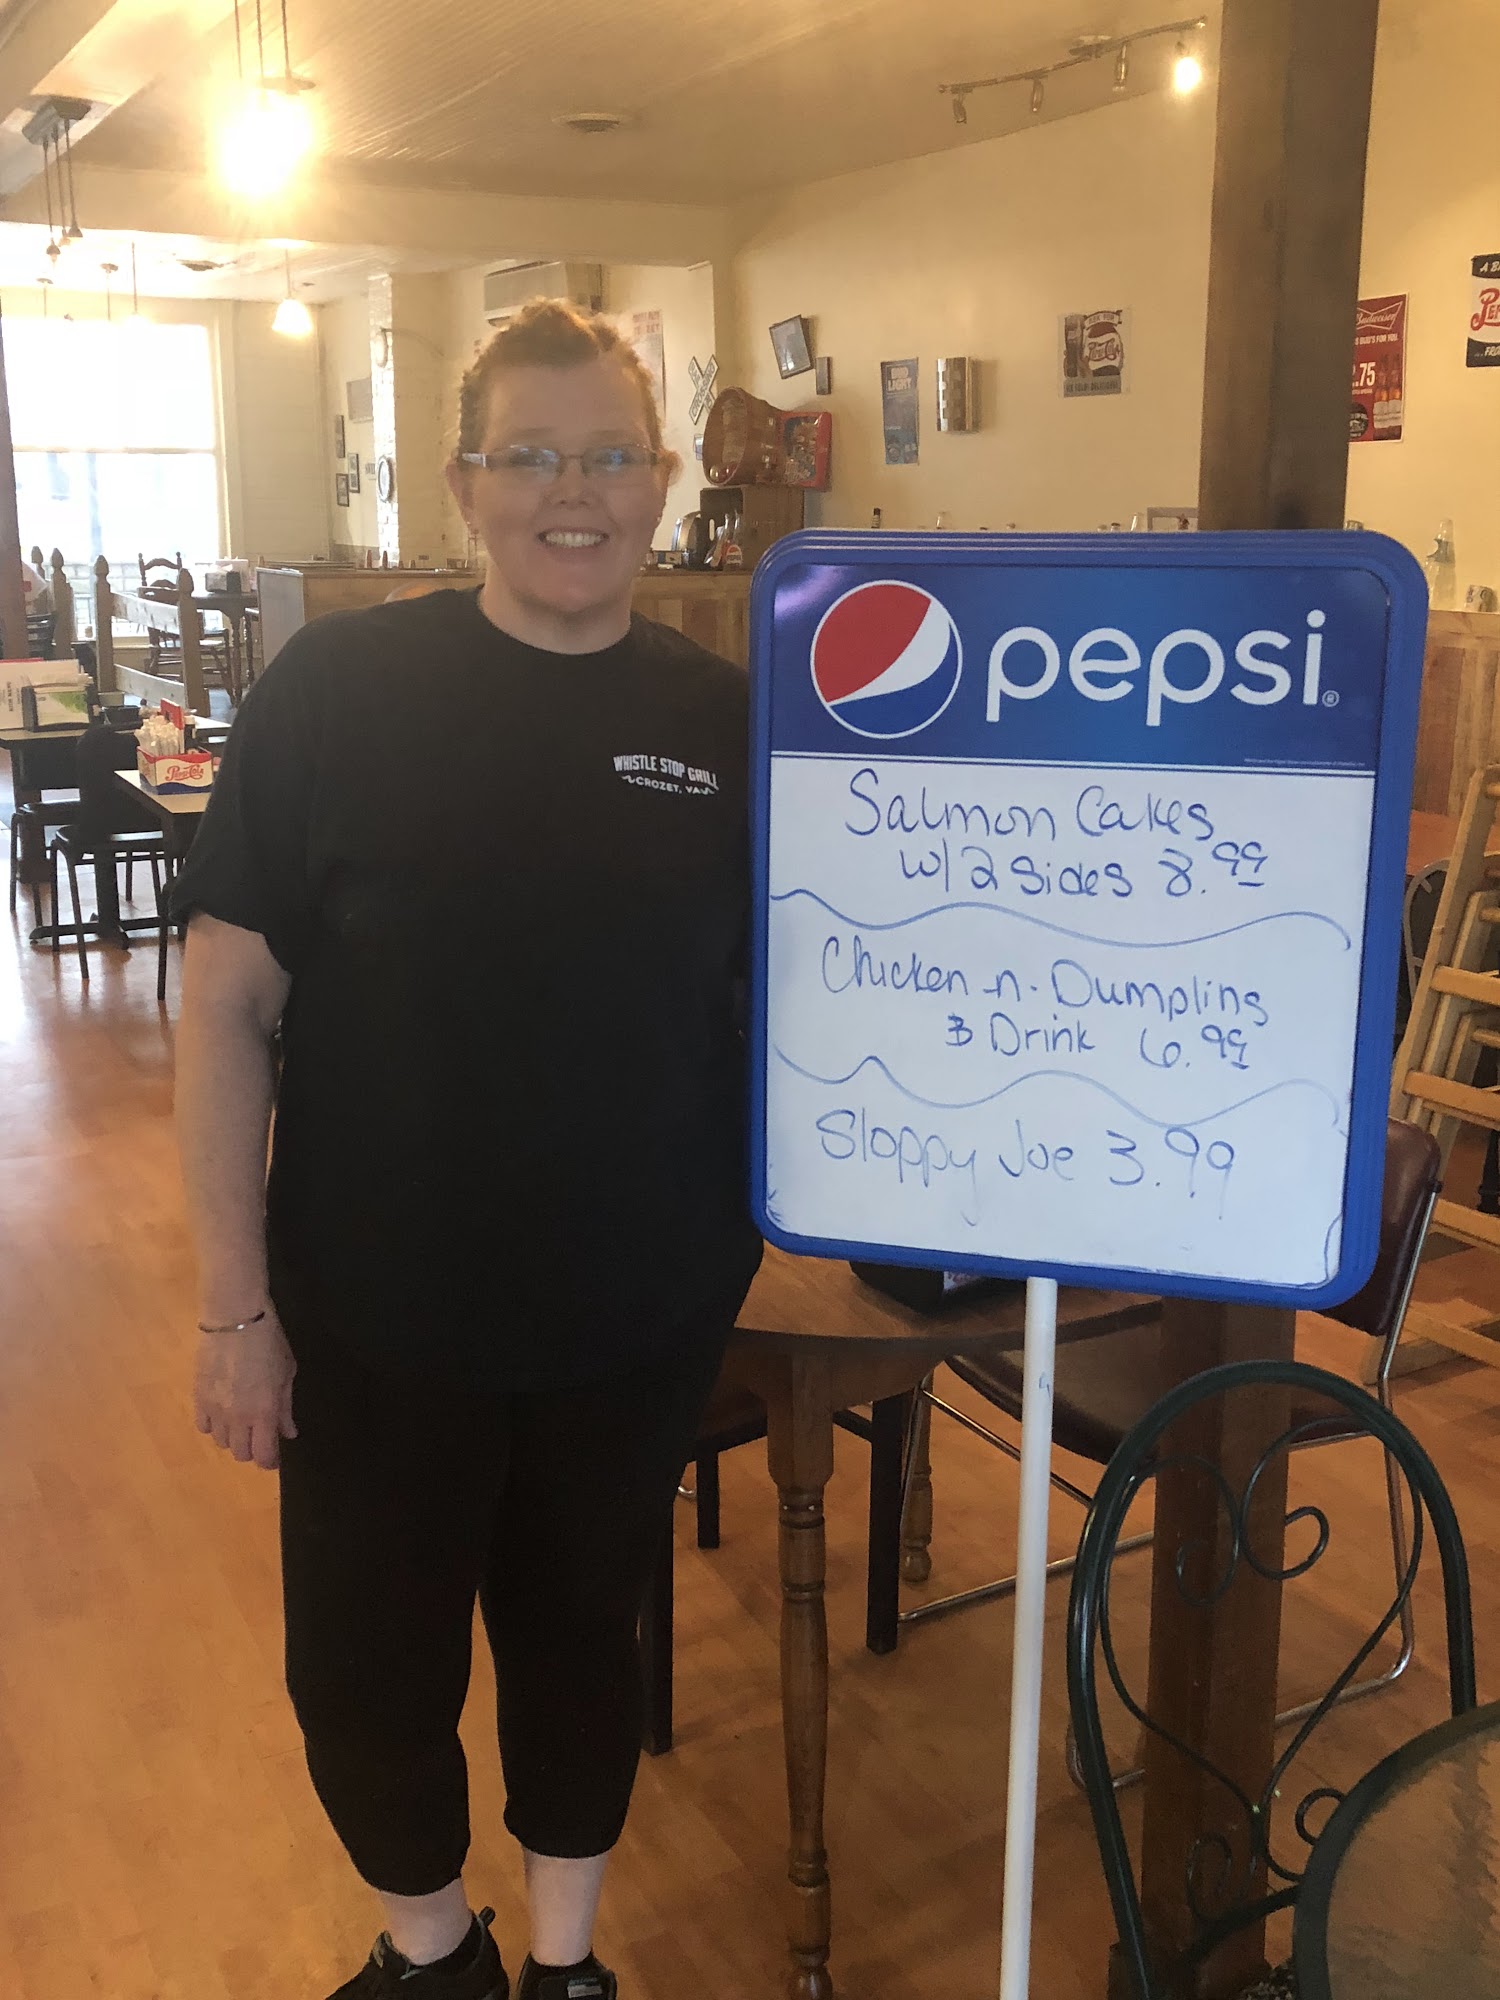 WHISTLE STOP GRILL
CROZET, VA
pepsi
Salmon Cakes
w/ 2 sides 8.99
Chicken -n- Dumplins
& Drink 6.99
Sloppy Joe 3.99
BUD
LIGHT
Pepsi-Cola
Budweiser
.75
Pepsi-Cola